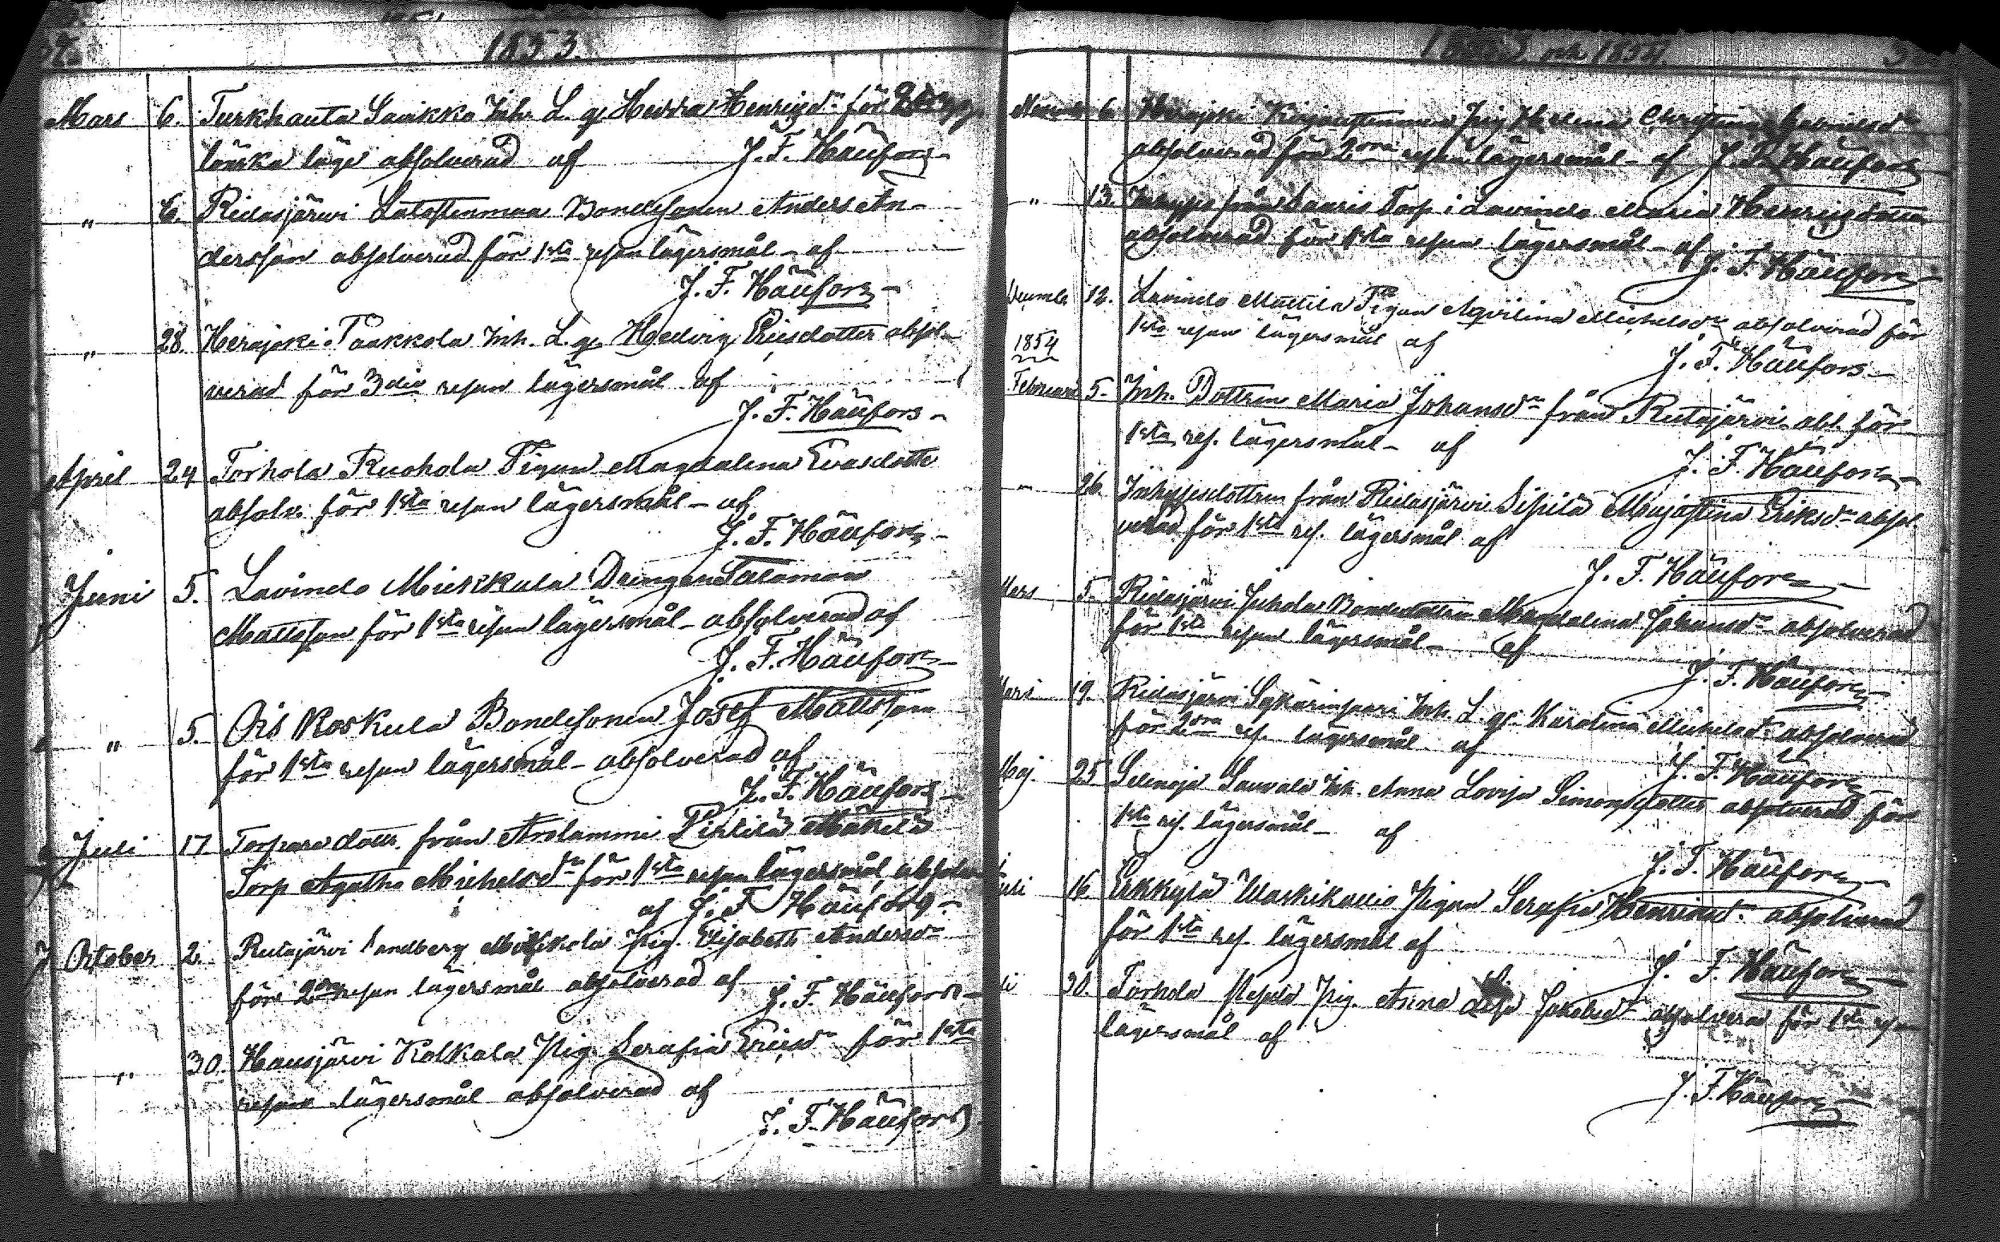 1853.
Mars 6. Turkhauta Saukko Inh. L. q. Hedda Henrigsdr för
löuska läge absolverad af J. F. Häufors
" 6. Ridasjärvi Bondesonen Anders An-
dersson absolverad för 1sta resan lägersmål – af
J. F. Häufors –
" 28. Herajoki Paakkola Inh. L. q. Hedvig Ericsdotter absol-
verad för 3die resan lägersmål af
J. F. Häufors –
April 24 Torhola Ruohola Pigan Magdalena
absolv. för 1sta resan lägersmål – af
J. F. Häufors –
Juni 5. Lavinto Mickkala Drengen Salomon
Mattsson för 1sta resan lägersmål – absolverad af
J. F. Häufors –
" 5. Ois Koskula Bondesonen Josef Mattsson
för 1sta resan lägersmål – absolverad af
J. F. Häufors –
Juli 17 Torpare dottr. från Arolammi Mäkelä
Torp Agatha Michelsdr för 1sta resan lägersmål
af J. F. Häufors –
October 2. Rutajärvi Pig. Elisabeth Andersdr
för 2dra resan lägersmål absolverad af
J. F. Häufors –
" 30. Hausjärvi Kolkala Pig. Serafia Ericsdr för 1sta
resan lägersmål absolverad af
J. F. Häufors
och 1854.
6. Herajoki Pig Helena Christina
absolverad för 2dra resan lägersmål – af J. F. Häufors
" 13. från Torp i Lavinto Maria Henrigsdotter
absolverad för 1sta resan lägersmål – af
J. F. Häufors
12. Lavinto Mattila Pigan Aqvilina Michelsdr absolverad för
1sta resan lägersmål af
J. F. Häufors –
1854
Februari 5. Inh. Dottren Maria Johansdr från Rutajärvi abs. för
1sta res. lägersmål – af
J. F. Häufors –
" 26. Inhysesdottren från Ridasjärvi Sipilä Eriksdr absol-
verad för 1sta res. lägersmål af
J. F. Häufors –
Mars 5. Ridasjärvi Bondedottren Magdalena Johansdr absolverad
för 1sta resan lägersmål – af
J. F. Häufors –
Mars 19. Ridasjärvi Inh. L. q. Karolina Michelsdr absolverad
för 2dra res. lägersmål af
J. F. Häufors
Maj. 25 Selänoja Sauvala Inh. Anna Lovisa Simonsdotter absolverad för
1sta res. lägersmål – af
J. F. Häufors –
16. Erkkylä Waskikallio Pigan Serafia Henricsdr absolverad
för 1sta res. lägersmål af
J. F. Häufors –
30. Torhola Pig. Anna Jakobsdr absolverad för 1sta
lägersmål af
J. F. Häufors –